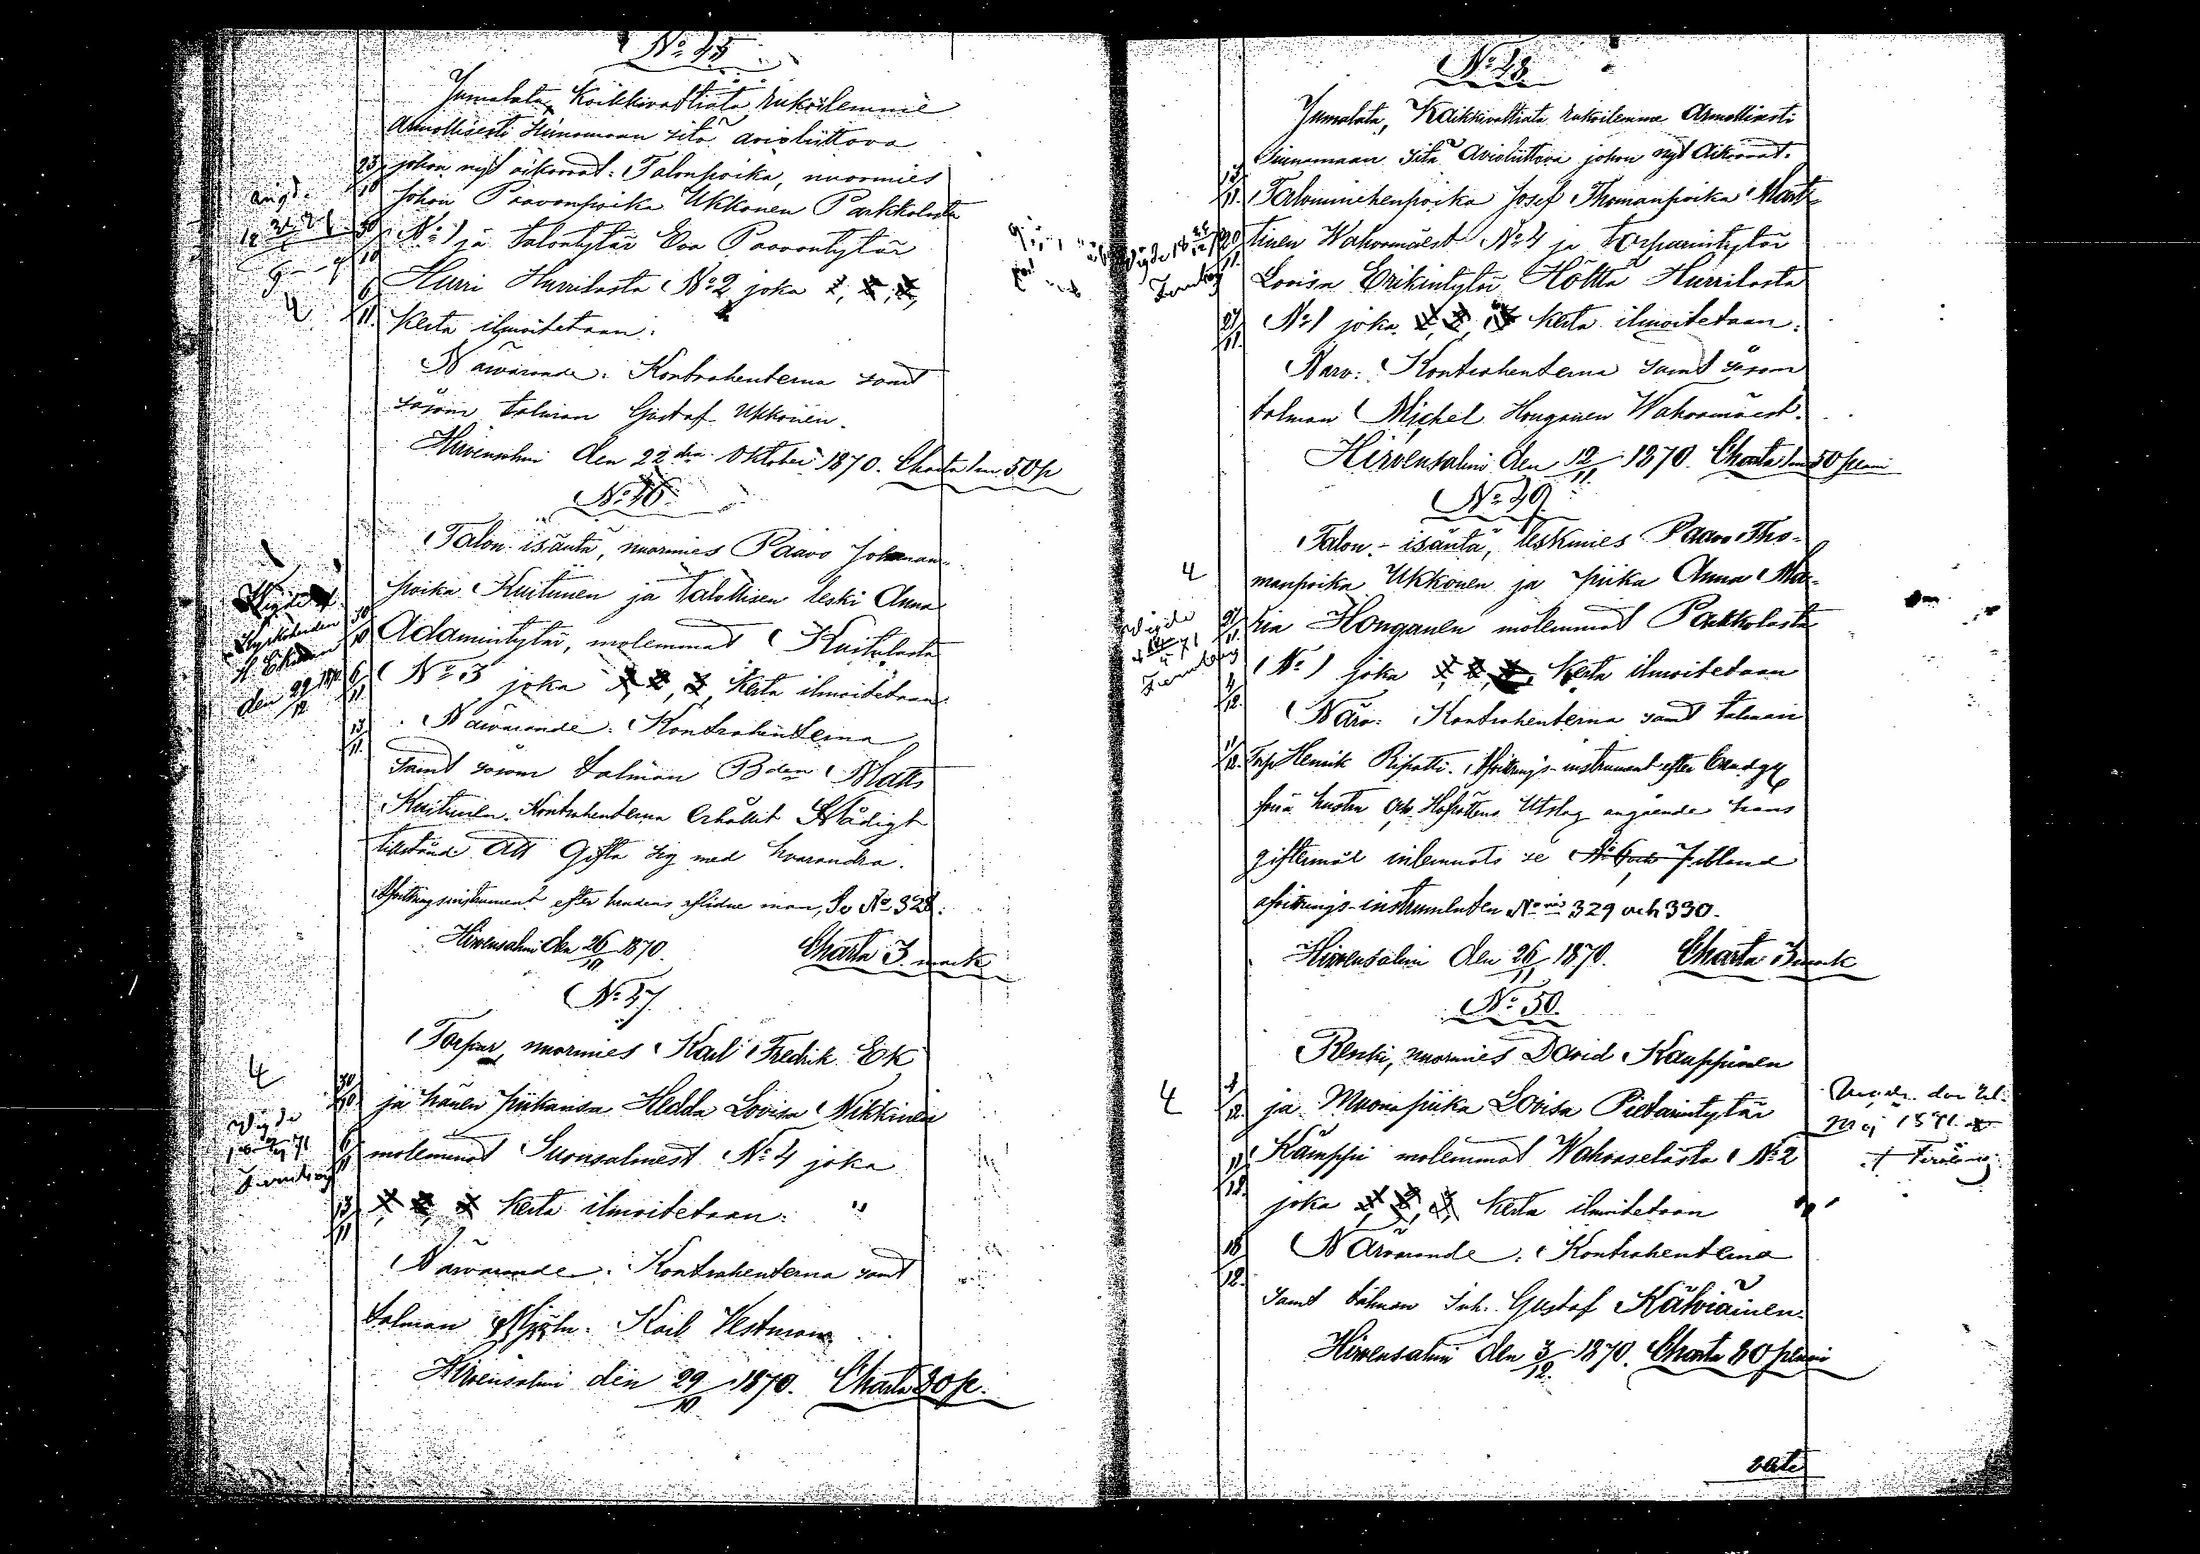 No 45
Jumalata Kaikkivaltiata rukoilemme
Armollisesti Siunamaan sitä avioliittova
23/10 johon nyt aikovat: Talonpoika, nuormies
Johan Paavonpoika Ukkonen Parkkolasta
30/10 No 1 ja talontytär Eva Paavontytär
Hurri Hurrilasta No 2 joka 1, 2, 3,
6/11 kerta ilmoitetaan.
Närvarande: Kontrahenterna samt
såsom talman Gustaf Ukkonen.
Hirvensalmi den 22dra Oktober 1870. Charta 1m 50 p
No 46.
Talon-isäntä, nuormies Paavo Johanan-
poika Kuitunen ja talollisen leski Anna
30/10 Adamintytär, molemmat Kuitulasta
6/11 No 3 joka 1, 2, 3, kerta ilmoitetaan.
13/11 Närvarande: Kontrahenterna
samt såsom talman Bden Matts
Kuitunen. Kontrahenterna erhållit Nådigt
tillstånd att Gifta sig med hvarandra.
Afvittringsinstrument efter hennes aflidne man, Se No 328.
Hirvensalmi den 26/10 1870. Charta 3 mark
No 47.
Torpar, nuormies Karl Fredrik Ek
30/10 ja hänen piikansa Hedda Lovisa Nikkinen
6/11 molemmat Suonsalmest No 4 joka
13/11 1, 2, 3 kerta ilmoitetaan.
Närvarande: Kontrahenterna samt
talman Mjöln. Karl Vestman
Hirvensalmi den 29/10 1870. Charta 80 p.
4
Vigde
4
No 48.
Jumalata, Kaikkivaltiata rukoilemme Armollisesti
Siunamaan sitä Avioliittova johon nyt Aikovat.
13/11 Talonmiehenpoika Josef Thomanpoika Mart-
20/11 tinen Wahvamäest No 4 ja torparintytär
Lovisa Erikintytär Hölttä Hurrilasta
27/11 No 1 joka 1, 2, 3 kerta ilmoitetaan.
Närv: Kontrahenterna samt såsom
talman Michel Honganen Wahvamäest.
Hirvensalmi den 12/11 1870. Charta 1m 50 penni
No 49.
Talon-isäntä, leskimies Paavo Tho-
manpoika Ukkonen ja piika Anna Ma-
27/11 ria Honganen molemmat Parkkolasta
4/12 No 1 joka 1, 2, 3 kerta ilmoitetaan
Närv: Kontrahenterna samt talman
11/12 Torp Henrik Ripatti. Afvittrings-instrument efter
hustru och Hofrättens Utslag angående hans
giftermål inlemnats se ibland
afvittrings-instrumenten No 329 och 330.
Hirvensalmi den 26/11 1870. Charta 3 mark
No 50.
Renki, nuormies David Kauppinen
4/12 ja Muonapiika Lovisa Pietarintytär
11/12 Kämppi molemmat Wahvaselästä No 2
joka 1, 2, 3 kerta ilmoitetaan
18/12 Närvarande: Kontrahenterna
samt talman Inh. Gustaf Kälviäinen.
Hirvensalmi den 3/12 1870. Charta 80 penni
4
Vigde
4